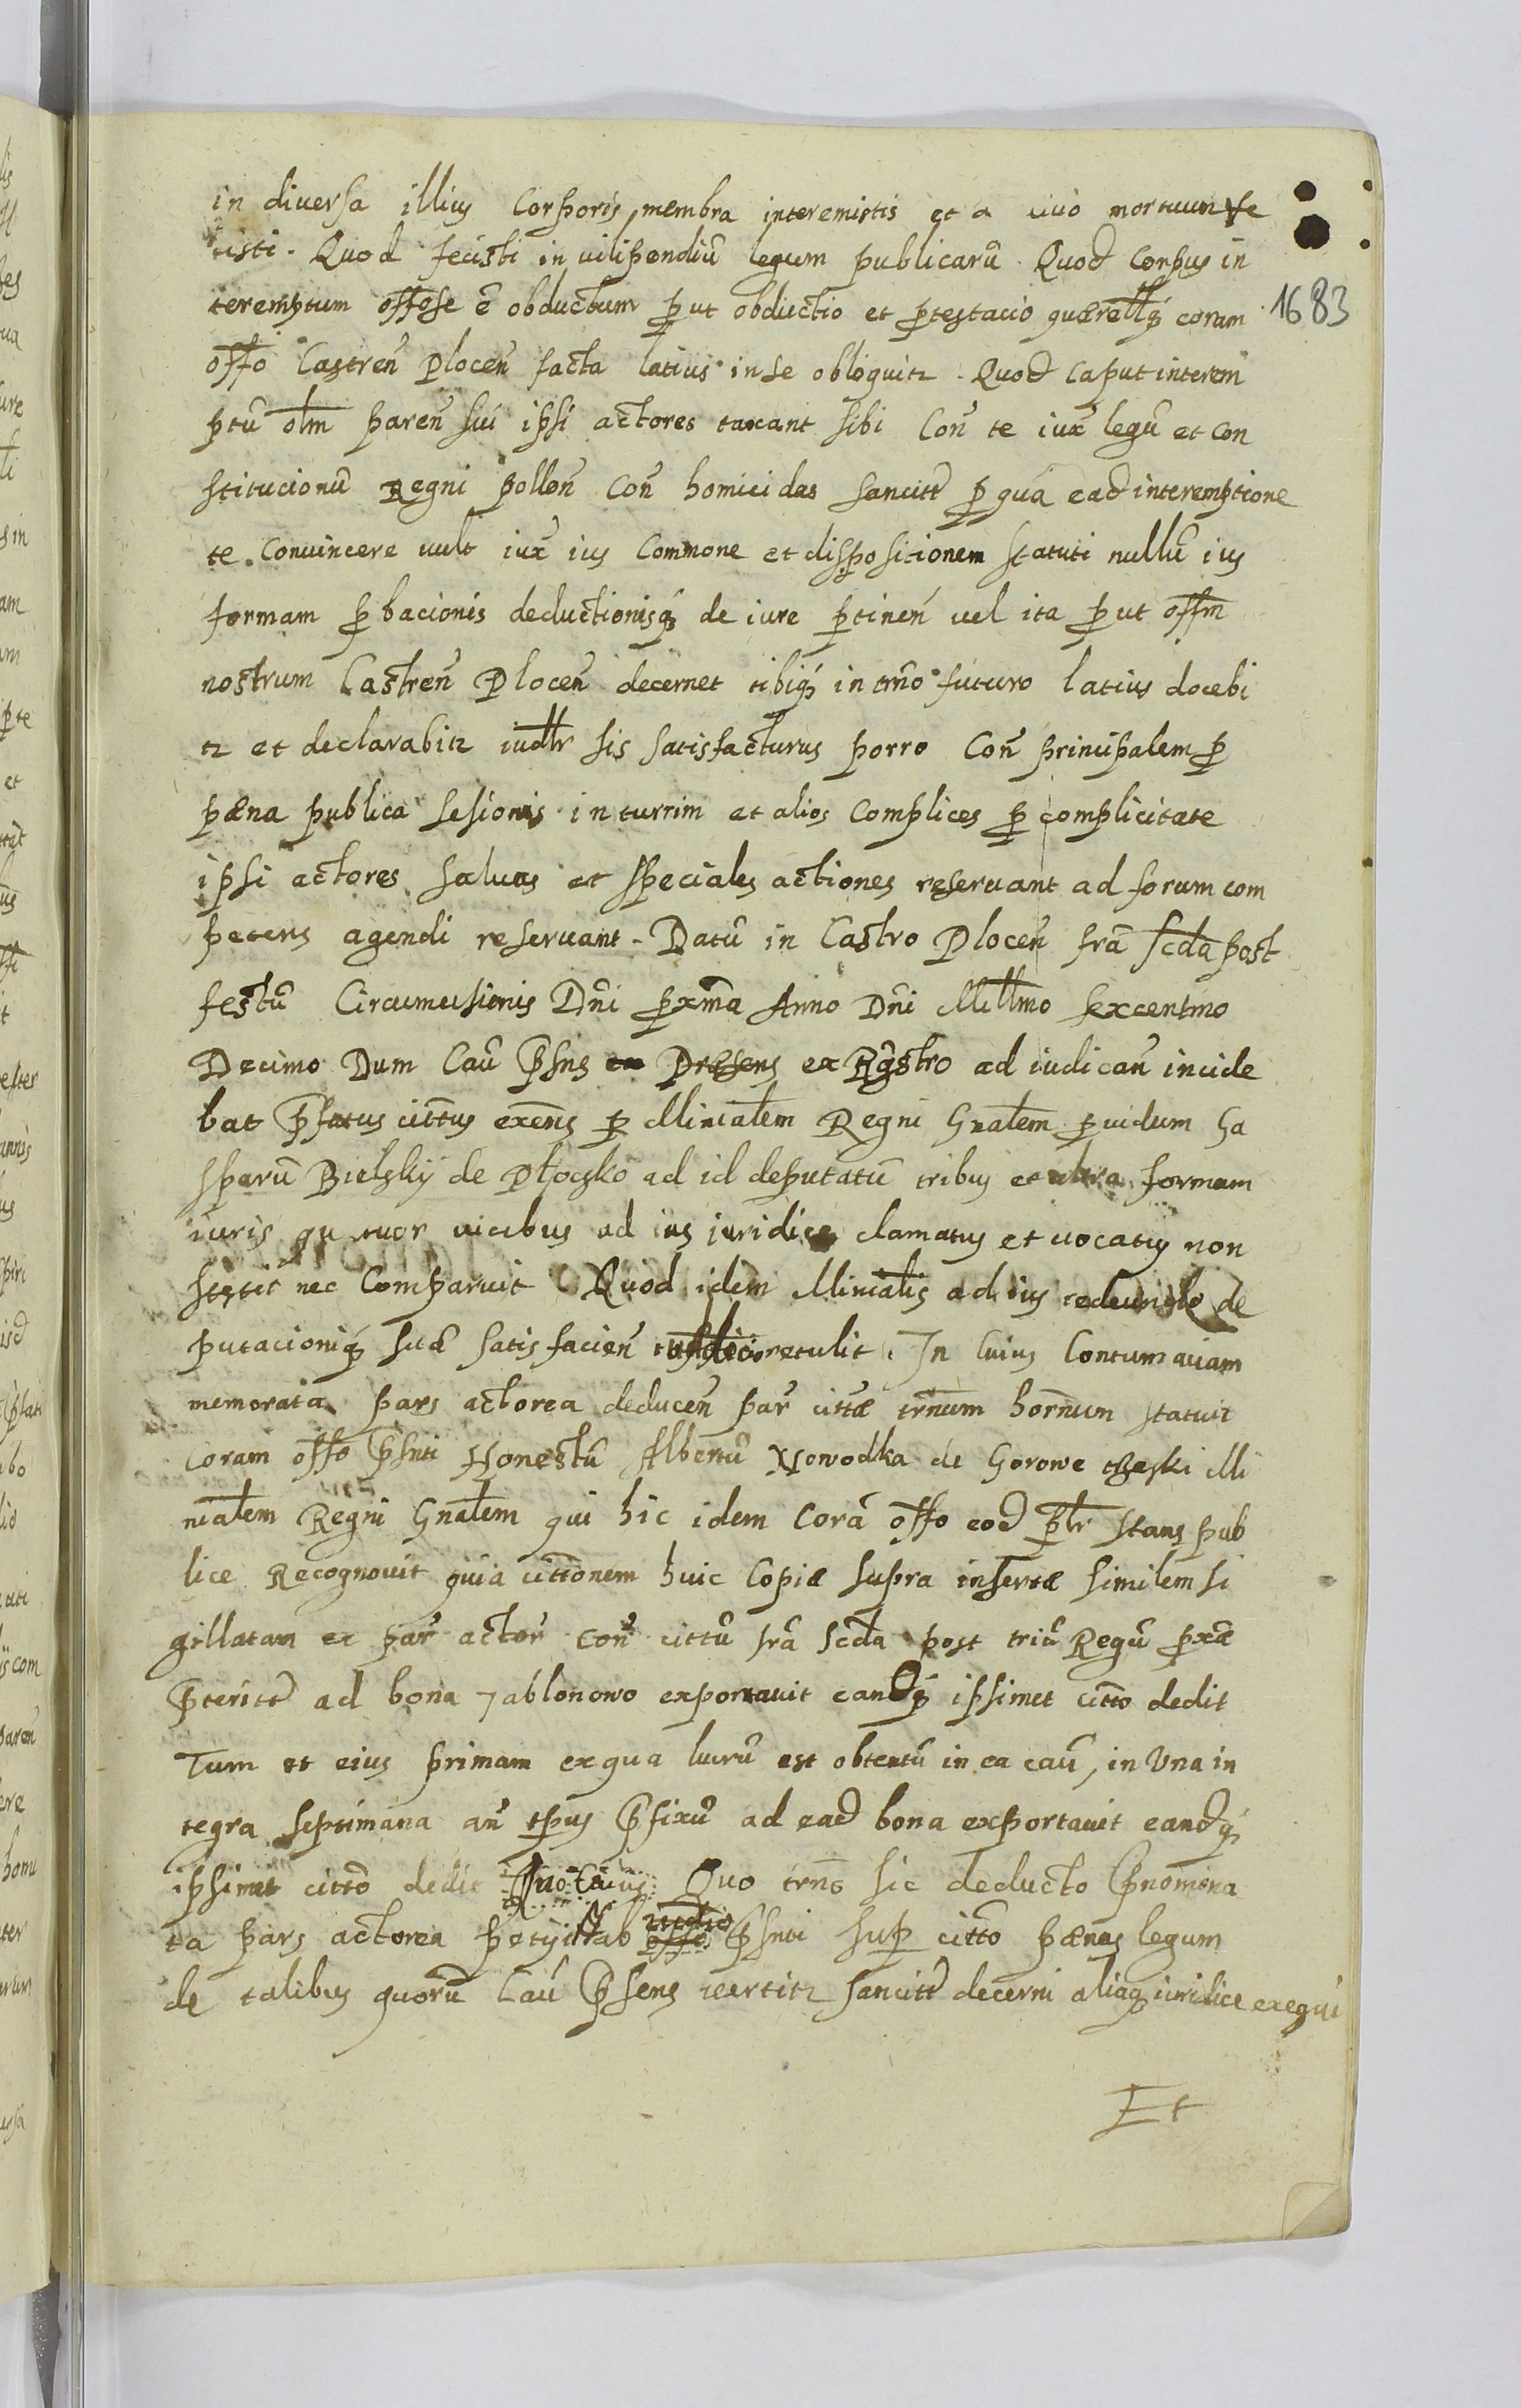 in diversa illius Corporis membra interemistis et a vivo mortuum fe
cisti. Quod fecisti in vilipendiũ legum publicarũ. Quod Corpus in
teremptum offose ẽ obductum ꝓut obductio et ꝓtestacio quærellq́ꝫ coram
1683
offo Castreñ Ploceñ facta latius in se obloquitꝛ. Quod Caput interem
ptũ olm pareñ sui ipsi actores taxant sibi Coñ te iux̃ legũ et con
stitucionũ Regni polloñ Coñ homicidas sancitt ꝓ qua ead interemptione
te. Convincere vult iux̃ ius Commone et dispositionem Statuti nullũ ius
formam ꝓbacionis deductionisqꝫ de iure ꝑtineñ vel ita ꝓut offm
nostrum Castreñ Ploceñ decernet tibiqꝫ in trño futuro latius docebi
tꝛ et declarabitꝛ iudtr sis satisfacturus porro Coñ principalem ꝓ
pæna publica sesionis in turrim et alios Complices ꝓ complicitate
ipsi actores salvas et speciales actiones reservant ad forum com
petens agendi reservant. Datũ in Castro Ploceñ frã scda post
festũ Circumcisionis Dñi ꝓxma Anno Dñi Millmo sexcentmo
Decimo Dum Caũ p̃sns ex Præsens ex Rg̃stro ad iudicañ incide
bat p̃fatus cittus exens ꝑ Ministalem Regni Gnalem ꝓvidum Ga
sparũ Bielskÿ de Płocsko ad id deputatũ tribus et ultra formam
iuris quatuor vicibus ad ius iuridice clamatus et vocatus non
stetit nec Comparuit Quod idem Minialis ad ius redeundo de
putacioniqꝫ suæ satisfacieñ retulit. In Cuius Contumaciam
memorata pars actorea deduceñ par̃ cittæ trñum hornum statuit
Coram offo p̃snti Honestũ Albertũ Nowodka de Gorowe Mi
nialem Regni Gnalem qui hic idem Corã offo eod ꝑlr stans pub
lice Recognovit quia cittonem huic Copiæ supra insertæ similem si
gillatam ex par̃ actor̃ Coñ cittũ frã scda post triũ Regũ ꝓxæ
p̃teritt ad bona Jablonowo exportavit eandqꝫ ipsimet citto dedit
Tum et eius primam ex qua lucrũ est obtentũ in ea caũ, in Una in
tegra septimana añ tpus p̃fixũ ad ead bona exportavit eandqꝫ
ipsimet cittõ dedit Quo trño sic deducto p̃nomina
ta pars actorea petÿt ab iudio offo p̃snti suꝑ cittõ pænas legum
de talibus quorũ Caũ p̃sens vertitꝛ sancitt decerni aliaqꝫ iuridice exequi
Et